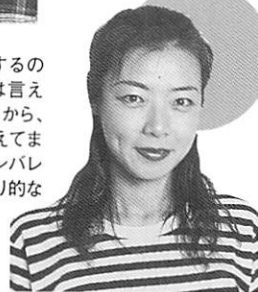 するの
は言え
から、
えてま
ンバレ
り的な